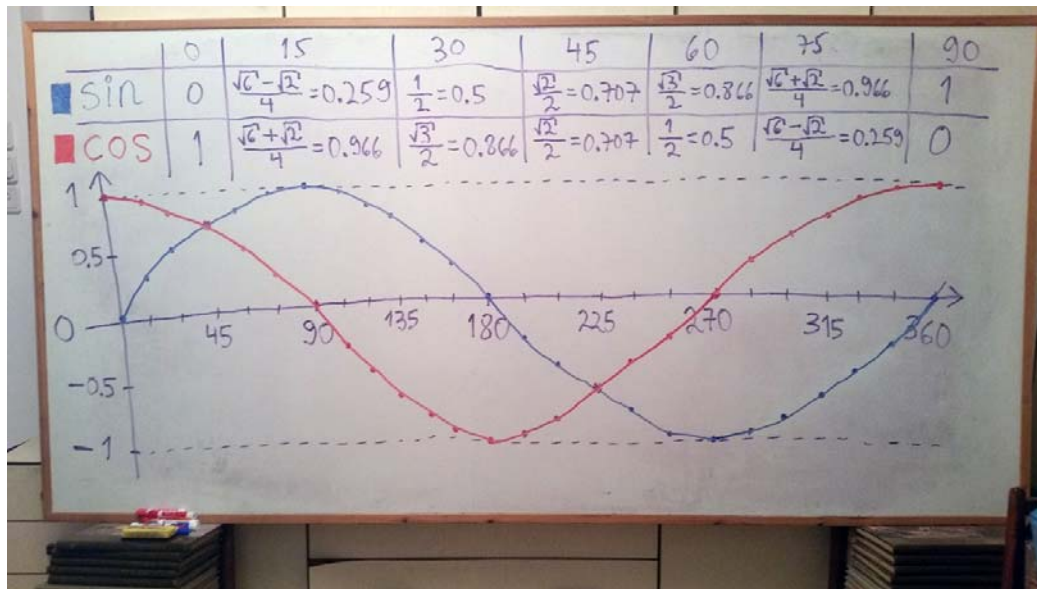 0 15 30 45 60 75 90
sin 0 √6-√2/4=0.259 1/2=0.5 √2/2=0.707 √3/2=0.866 √6+√2/4=0.966 1
cos 1 √6+√2/4=0.966 √3/2=0.866 √2/2=0.707 1/2=0.5 √6-√2/4=0.259 0
1
0.5
0 45 90 135 180 225 270 315 360
-0.5
-1